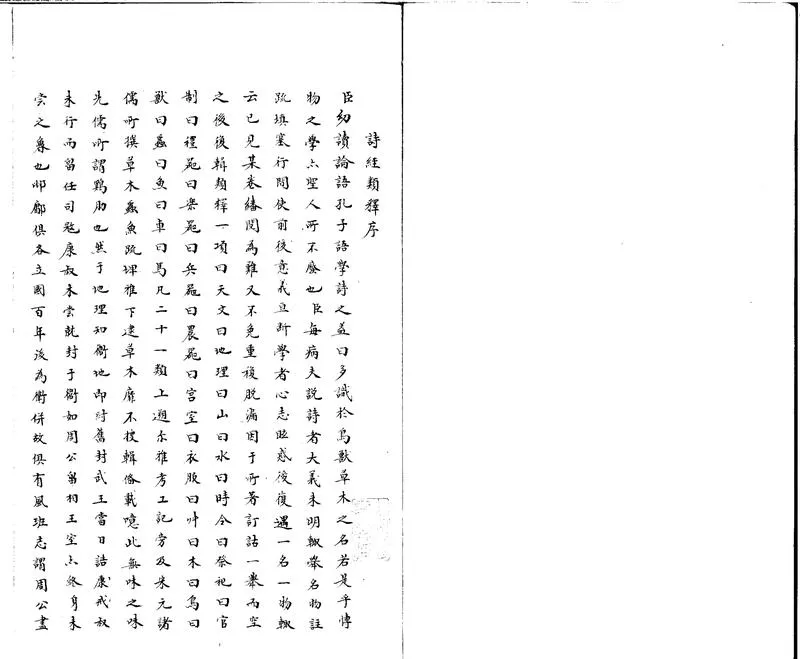 詩經類釋序
臣幼讀論語孔子語學詩之益曰多識於鳥獸草木之名若是乎博
物之學亦聖人所不廢也臣每病夫説詩者大義未明輒舉名物註
疏填塞行間使前後意義亘斷學者心志眩惑後復遇一名一物輒
云已見某卷繙閱為難又不免重複脱漏因于所著訂詁一舉而空
之後復輯類釋一項曰天文曰地理曰山曰水曰時令曰祭祀曰官
制曰禮噐曰樂噐曰兵噐曰農噐曰宮室曰衣服曰艸曰木曰鳥曰
獸曰蟲曰魚曰車曰馬凡二十一類上遡尔雅考工記旁及宋元諸
儒所撰草木蟲魚疏埤雅下逮草木靡不搜輯俻載噫此無味之味
先儒所謂鷄肋也然于地理知衞地即紂舊封武王當日誥康戒叔
未行而留任司寇康叔未嘗就封于衞如周公留相王室亦終身未
嘗之魯也邶鄘俱各立國百年後為衞併故俱有風班志謂周公盡